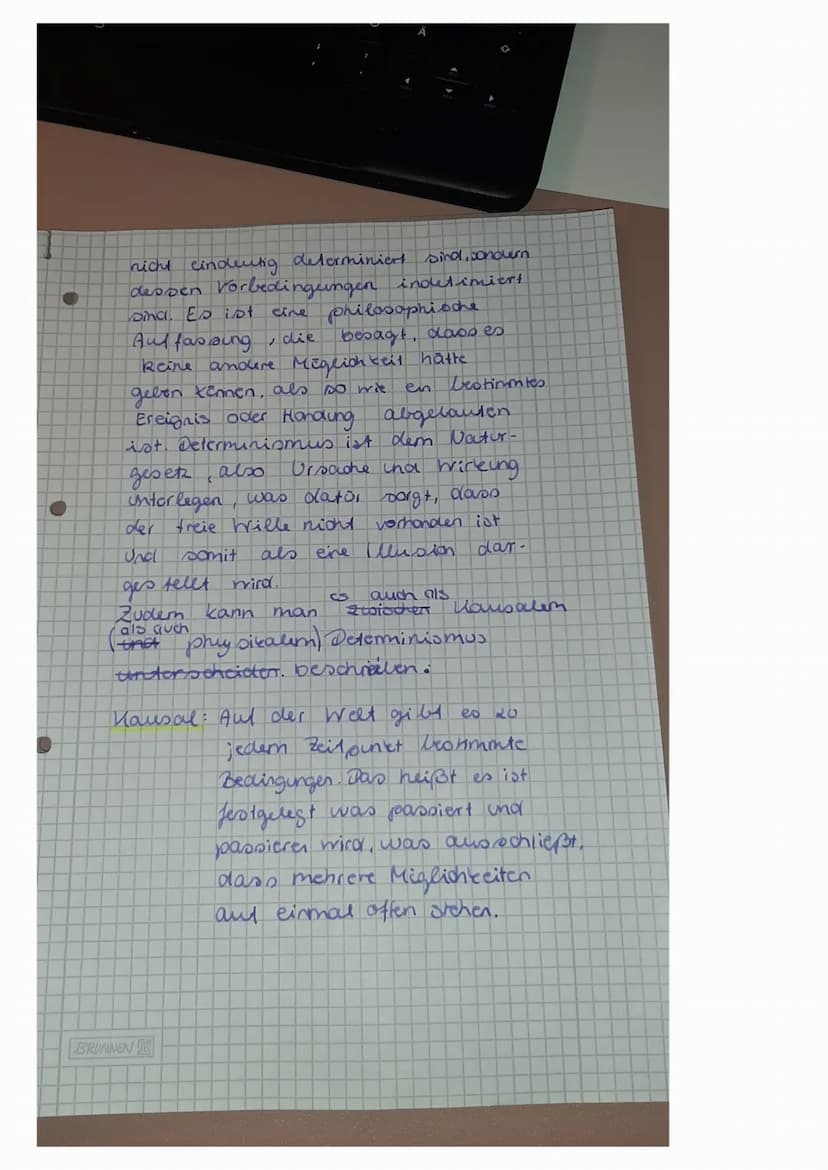 nicht eindeutig determiniert sind, sondern
dessen Vorbedingungen indetimiert
sind. Es ist eine philosophische
Auffassung, die besagt, dass es
keine andere Möglichkeit hätte
geben können, als so wie ein bestimmtes
Ereignis oder Handung abgelaufen
ist. Determinismus ist dem Natur-
gesetz, also Ursache und Wirkung
unterlegen, was dafür sorgt, dass
der freie Wille nicht vorhanden ist
und somit als eine Illusion dar-
gestellt wird.
es auch als
Zudem kann man zwischen Kausalem
als auch
(und physikalem) Determinismus
unterscheiden. beschreiben:
Kausal: Auf der Welt gibt es zu
jedem Zeitpunkt bestimmte
Bedingungen. Das heißt es ist
festgelegt was passiert und
passieren wird, was ausschließt,
dass mehrere Möglichkeiten
auf einmal offen stehen.
BRUNNEN